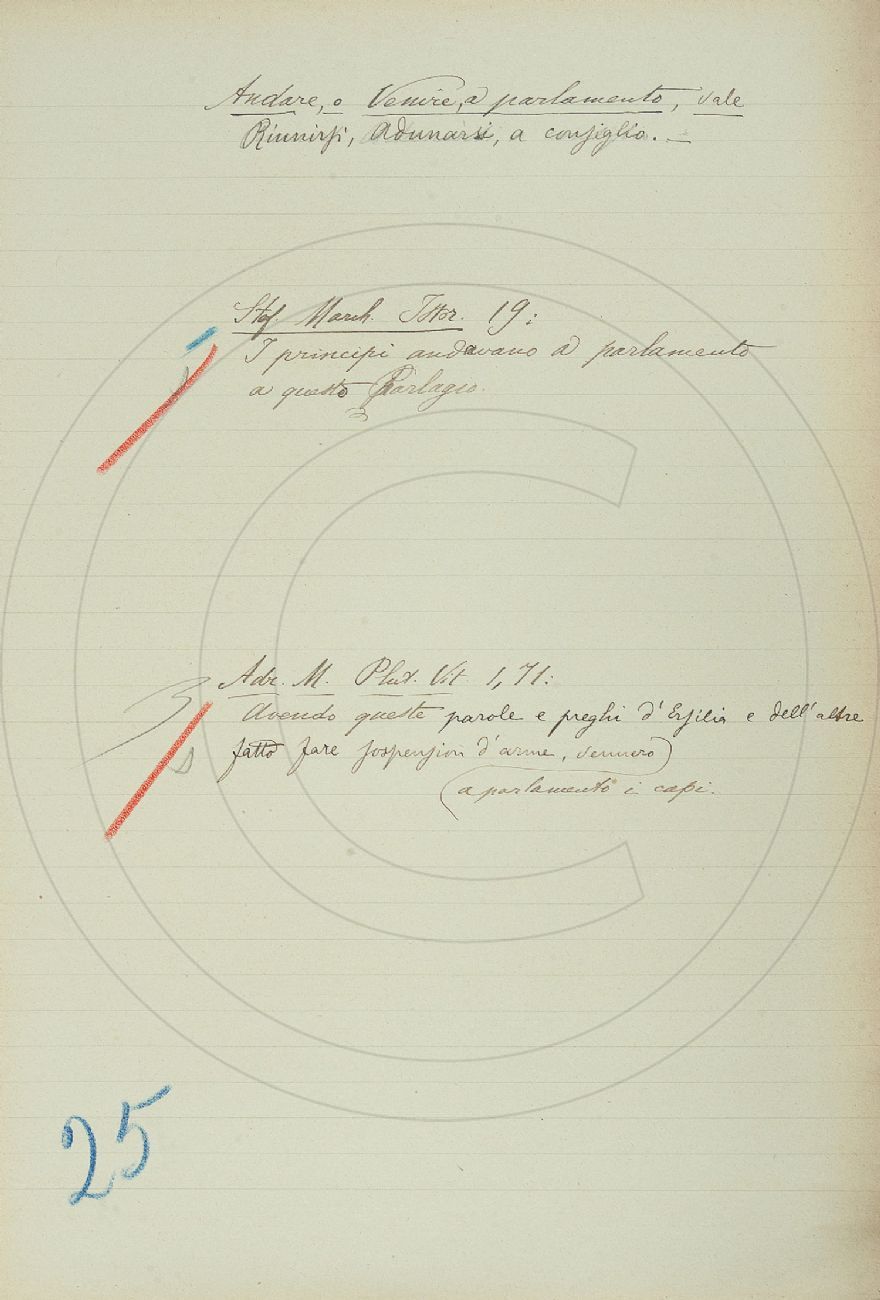 Andare, o Venire, a parlamento, vale
Riunirsi, Adunarsi, a consiglio. —
Stef. March. Istor. 19:
I principi andavano a parlamento
a questo Parlagio.
Adr. M. Plut. Vit. 1, 71:
Avendo queste parole e preghi d'Ersilia e dell'altre
fatto fare sospension d'arme, vennero
a parlamento i capi.
25